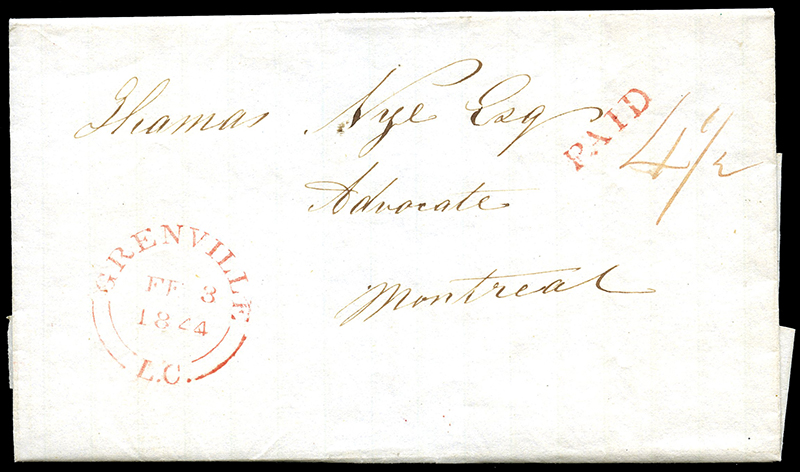 Thomas Nye Esq
PAID
4½
Advocate
Montreal
GRENVILLE
FE 3
1844
L.C.